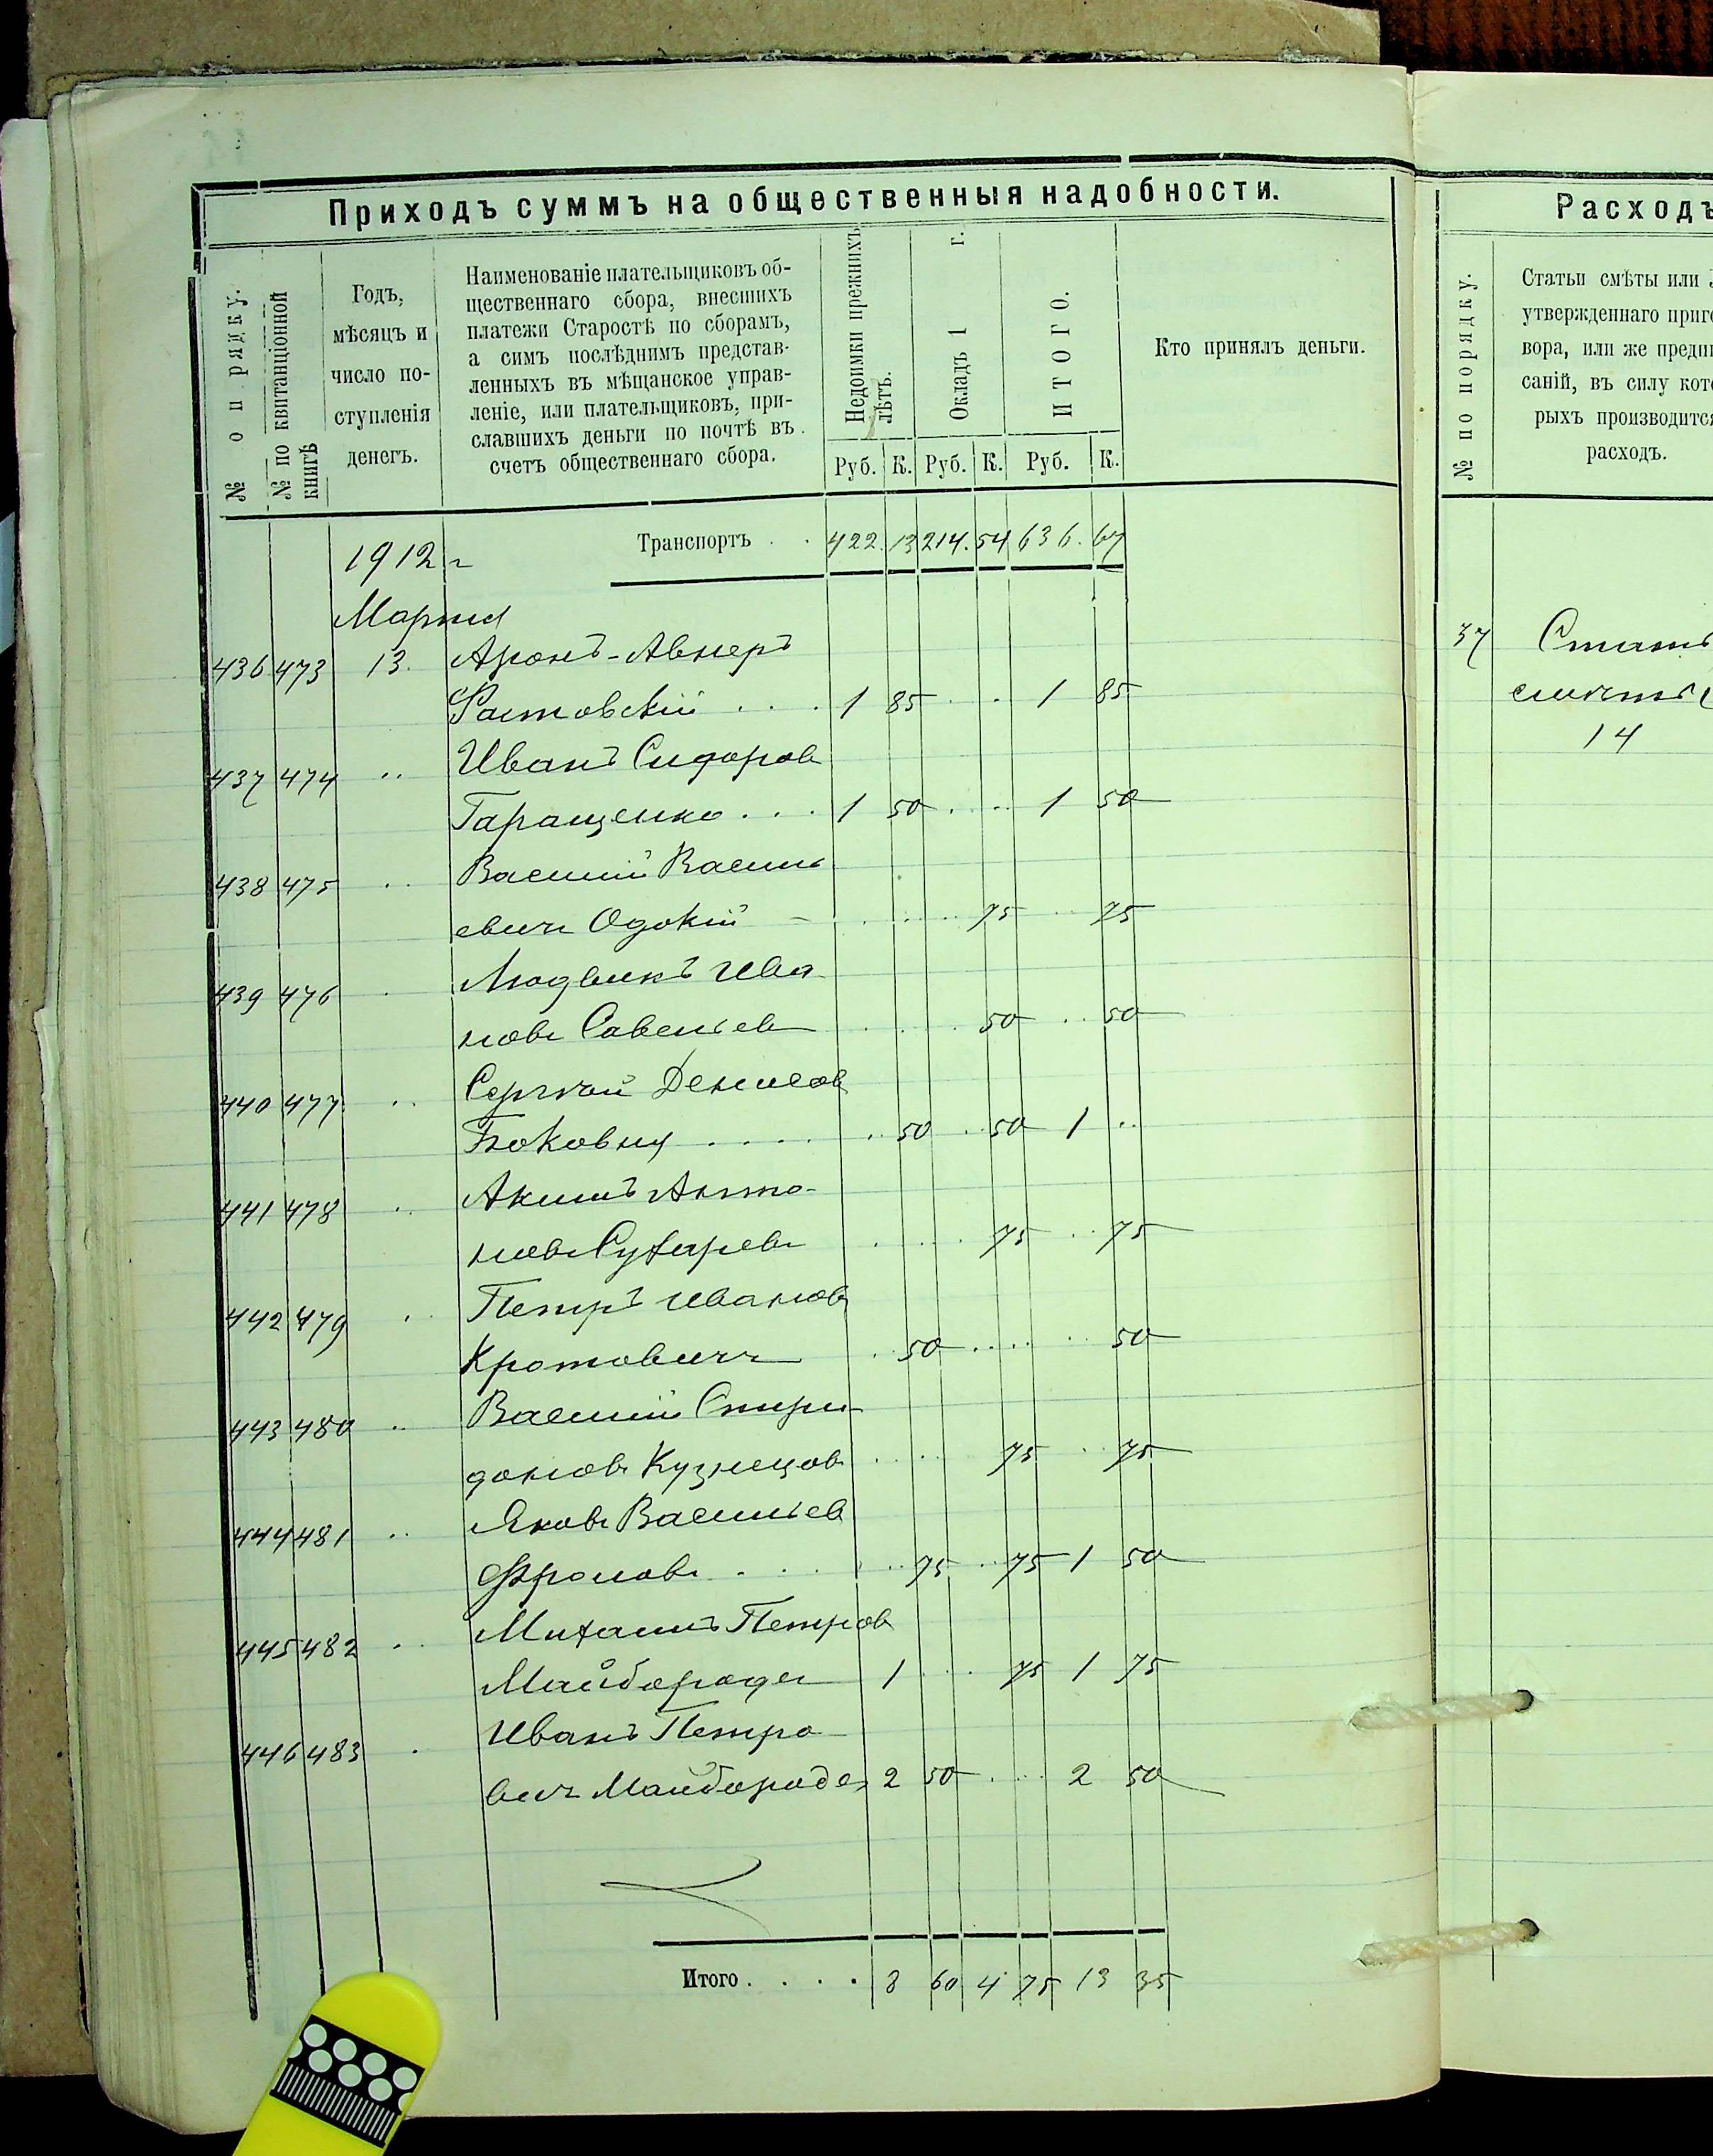 Приходъ суммъ на общественныя надобности.
№ о п рядку.
№ по квитанціонной книгѣ
Годъ,
мѣсяцъ и
число по-
ступленія
денегъ.
Наименованіе плательщиковъ об-
щественнаго сбора, внесшихъ
платежи Старостѣ по сборамъ,
а симъ послѣднимъ представ-
ленныхъ въ мѣщанское управ-
леніе, или плательщиковъ, при-
славшихъ деньги по почтѣ въ
счетъ общественнаго сбора.
Недоимки прежнихъ лѣтъ.
Окладъ 1 г.
ИТОГО.
Кто принялъ деньги.
Руб. К. Руб. К. Руб. К.
1912 г Транспортъ . . 422. 13 214. 54 636. 67
Марта
436 473 13. Аронъ-Авнеръ
Ростовскій . . . 1 85 . . 1 85
437 474 .. Иванъ Сидоров
Таращенко . . . 1 50 . . . 1 50
438 475 .. Василій Василь
евичъ Одокій 75 75
439 476 . Людвикъ Ива
новъ Савельев 50 50
440 477 .. Сергѣй Денисов
Боковня . . . . 50 50 1 ..
441 478 .. Акимъ Анто-
новъ Сухарев 75 75
442 479 . Петръ Иванов
Кротовичъ 50 50
443 480 .. Василій Спири-
доновъ Кузнецов 75 75
444 481 .. Яковъ Васильев
Фроловъ 75 75 1 50
445 482 .. Михаилъ Петров
Майборода 1 75 1 75
446 483 . Иванъ Петро
вич Майборода 2 50 2 50
Итого . . . . 8 60 4 75 13 35
Расходъ
№ по порядку.
Статьи смѣты или
утвержденнаго приго
вора, или же предпи
саній, въ силу кото
рыхъ производится
расходъ.
37 Стать
смѣты
14